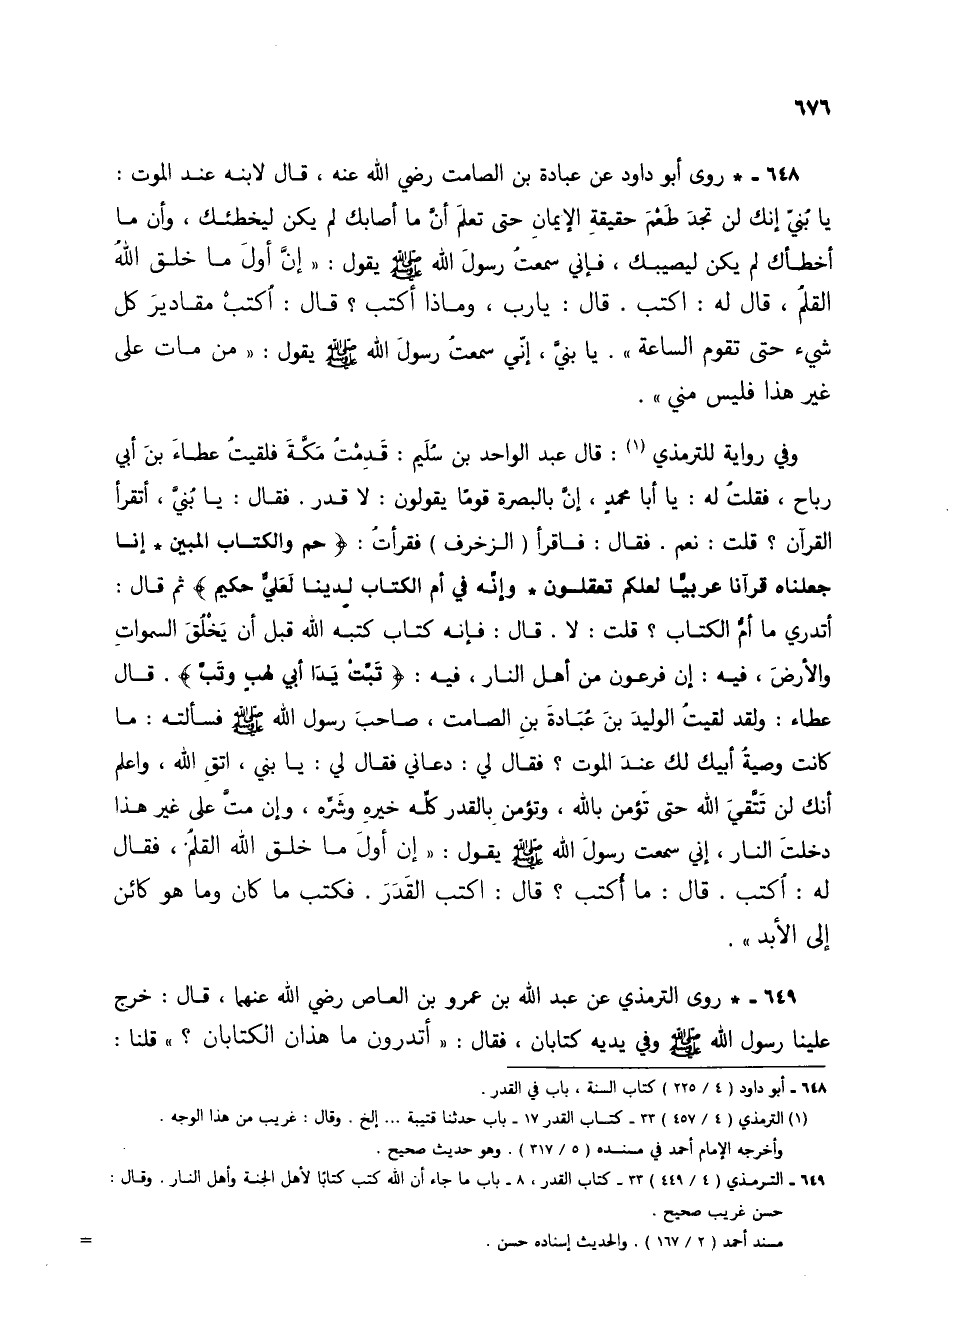 ٦٧٦
٦٤٨ - * روى أبو داود عن عبادة بن الصامت رضي الله عنه ، قال لابنه عند الموت :
يا بُنيّ إنك لن تجدَ طَعْمَ حقيقةِ الإيمانِ حتى تعلمَ أنَّ ما أصابك لم يكن ليخطئك ، وأن ما
أخطأك لم يكن ليصيبك ، فإني سمعتُ رسولَ الله ﷺ يقول : « إنَّ أولَ ما خلق اللهُ
القلمُ ، قال له : اكتب . قال : يارب ، وماذا أكتب ؟ قال : أكتبْ مقاديرَ كل
شيء حتى تقوم الساعة » . يا بنيَّ ، إنّي سمعتُ رسولَ الله ﷺ يقول : « من مات على
غير هذا فليس مني » .
وفي رواية للترمذي (١) : قال عبد الواحد بن سُلَيم : قَدِمْتُ مَكَّةَ فلقيتُ عطاءَ بنَ أبي
رباح ، فقلتُ له : يا أبا محمدٍ ، إنَّ بالبصرة قومًا يقولون : لا قدر . فقال : يا بُنيَّ ، أتقرأ
القرآن ؟ قلت : نعم . فقال : فاقرأ ( الزخرف ) فقرأتُ : ﴿ حم والكتاب المبين * إنا
جعلناه قرآنا عربيًّا لعلكم تعقلون * وإنَّه في أم الكتاب لدينا لَعَليٌّ حكيم ﴾ ثم قال :
أتدري ما أمُّ الكتاب ؟ قلت : لا . قال : فإنه كتاب كتبه الله قبل أن يَخْلُقَ السمواتِ
والأرضَ ، فيه : إن فرعون من أهل النار ، فيه : ﴿ تَبَّتْ يَدَا أبي لهبٍ وتَبَّ ﴾ . قال
عطاء : ولقد لقيتُ الوليدَ بنَ عُبَادةَ بنِ الصامت ، صاحبَ رسول الله ﷺ فسألته : ما
كانت وصيةُ أبيك لك عندَ الموت ؟ فقال لي : دعاني فقال لي : يا بني ، اتق الله ، واعلم
أنك لن تَتَّقيَ الله حتى تؤمن بالله ، وتؤمن بالقدر كلِّه خيرِه وشَرِّه ، وإن متَّ على غير هذا
دخلتَ النار ، إني سمعت رسولَ الله ﷺ يقول : « إن أولَ ما خلق الله القلمُ ، فقال
له : اُكتب . قال : ما أكتب ؟ قال : اكتب القَدَرَ . فكتب ما كان وما هو كائن
إلى الأبد » .
٦٤٩ - * روى الترمذي عن عبد الله بن عمرو بن العاص رضي الله عنهما ، قال : خرج
علينا رسول الله ﷺ وفي يديه كتابان ، فقال : « أتدرون ما هذان الكتابان ؟ » قلنا :
٦٤٨ - أبو داود ( ٤ / ٢٢٥ ) كتاب السنة ، باب في القدر .
(١) الترمذي ( ٤ / ٤٥٧ ) ٣٣ - كتاب القدر ١٧ - باب حدثنا قتيبة ... إلخ . وقال : غريب من هذا الوجه .
وأخرجه الإمام أحمد في مسنده ( ٥ / ٣١٧ ) . وهو حديث صحيح .
٦٤٩ - الترمذي ( ٤ / ٤٤٩ ) ٣٣ - كتاب القدر ، ٨ - باب ما جاء أن الله كتب كتابًا لأهل الجنة وأهل النار . وقال :
حسن غريب صحيح .
مسند أحمد ( ٢ / ١٦٧ ) . والحديث إسناده حسن .
=